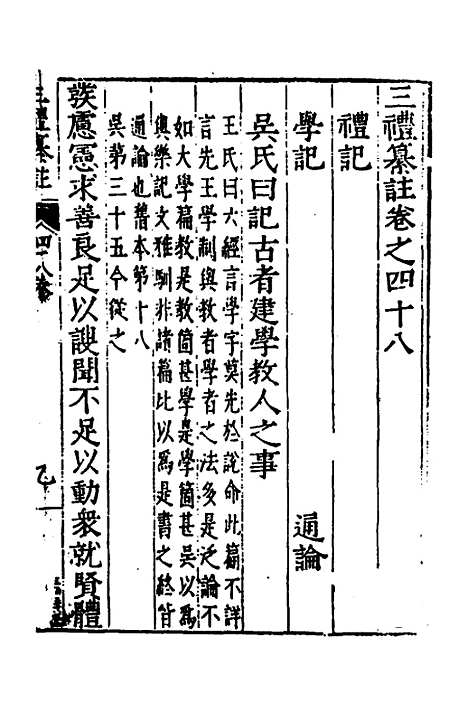 三禮纂註卷之四十八
禮記
學記 通論
吳氏曰記古者建學教人之事
王氏曰六經言學字莫先於說命此篇不詳
言先王學制與教者學者之法多是泛論不
如大學篇教是教箇甚學是學箇甚吳以為
與樂記文雅馴非諸篇比以為是書之終皆
通論也舊本第十八
吳第三十五今從之
發慮憲求善良足以謏聞不足以動衆就賢體
三禮纂註
四十八卷